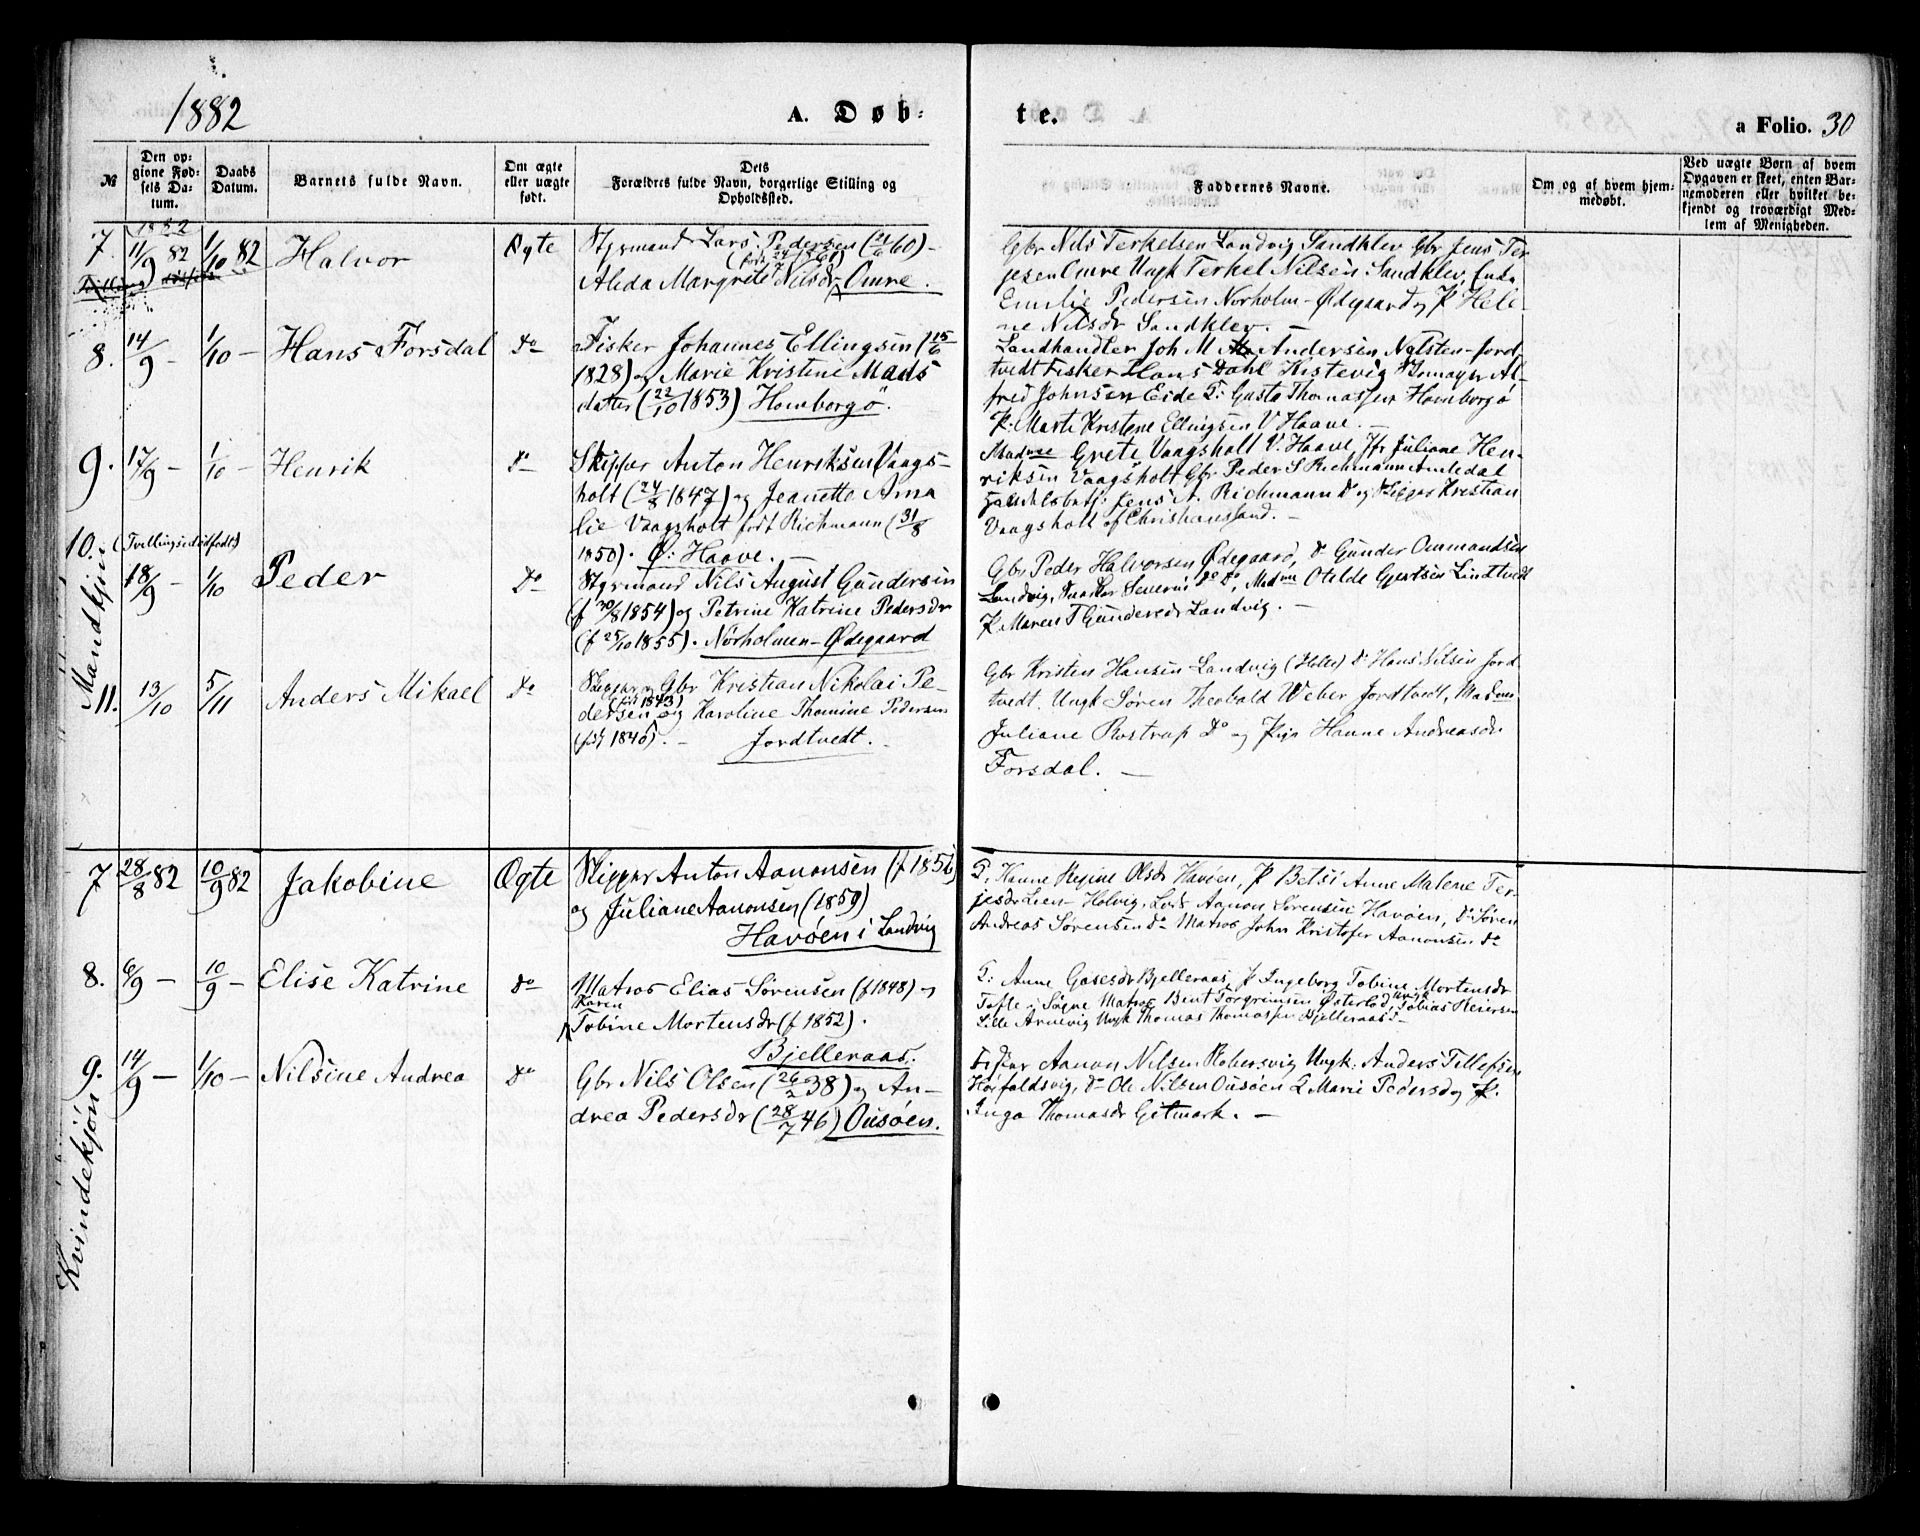 1882
A. Døb-
te.
a Folio. 30
№
Den op-
givne Fød-
sels Da-
tum.
Daabs
Datum.
Barnets fulde Navn.
Om ægte
eller uægte
født.
Dets
Forældres fulde Navn, borgerlige Stilling og
Opholdssted.
Faddernes Navne.
Om og af hvem hjem-
medøbt.
Ved uægte Børn af hvem
Opgaven er skeet, enten Bar-
nemoderen eller hvilket be-
kjendt og troværdigt Med-
lem af Menigheden.
Mandkjøn
7. 1882 11/9 82 1/10 82 Halvor Ægte
Styrmand Lars Pedersen (21/6 60) –
Alida Margrete Nilsdr Omre.
Gbr Nils Terkelsen Landvig Sandklev Gbr Jens Ter-
jesen Omre Ungk Terkel Nilsen Sandklev, Enke
Emilie Pedersen Norholm-Ødegaard og P Hele-
ne Nilsdr Sandklev. –
8. 14/9 – 1/10 – Hans Forsdal Do
Fisker Johannes Ellingsen (15/6
1828) og Marie Kristine Mads
datter (22/10 1853) Homborgø.
Landhandler Joh M Andersen Nylsten-Jord
tvedt Fisker Hans Dahl Kistevig Al-
fred Johnsen Eide G: Gusta Thomassen Homborgø
P: Marte Kristene Ellingsen V Haave. –
9. 17/9 – 1/10 – Henrik Do
Skipper Anton Henriksen Vaags-
holt (24/8 1847) og Jeanette Ama
lie Vaagsholt født Richmann (31/8
1850). Ø: Haave. –
Madme Grete Vaagsholt V. Haave, Jfr Juliane Hen-
riksen Vaagsholt Gbr Peder S Richmann Amledal
Handelsbetj: Jens A. Richmann Do og Skipper Kristian
Vaagsholt af Christiansand. –
10. (Tvillingsødødfødt)
18/9 – 1/10 Peder Do
Styrmand Nils August Gundersen
(f 30/8 1854) og Petrine Katrine Pedersdr
(f 25/10 1855). Nørholmen-Ødegaard
Gbr Peder Halvorsen Ødegaard, Do Gunder Ommundsen
Landvig, Severin Do Do, Madme Otelde Gjertsen Lindtvedt
P. Maren T Gundersdr Landvig. –
11. 13/10 5/11 Anders Mikael Do
Skipper og Gbr Kristian Nikolai Pe-
dersen (født 1843) og Karoline Thomine Pedersen
(født 1840). – Jordtvedt.
Gbr Kristen Hansen Landvig (Hole) Do Hans Nilsen Jord
tvedt. Ungk Søren Theobald Weber Jordtvedt, Madme
Juliane Rostrup Do og Pige Hanne Andreasdr
Forsdal. –
Kvindekjøn
7 28/8 82 10/9 82 Jakobine Ægte
Skipper Anton Aanonsen (f 1856)
og Juliane Aanonsen (1859)
Havøen i Landvig
G. Hanne Regine Olsdr Havøen, P Betsi Anne Malene Ter-
jesdr Lien-Holvig, Lods Aanon Sørensen Havøen, Do Søren
Andreas Sørensen Do Matros John Kristofer Aanonsen Do
8. 6/9 – 10/9 – Elise Katrine Do
Matros Elias Sørensen (f 1848) og
Karen
Tobine Mortensdr (f 1852).
Bjelleraas.
G: Anne Bjelleraas, P Ingeborg Tobine Mortensdr
Tofte i Søgne Matros Bent Torgrimsen Østerød, Ungk Tobias Reiersen
Lille Arnevig Ungk Thomas Thomassen Bjelleraas –
9. 14/9 – 1/10 – Nilsine Andrea Do
Gbr Nils Olsen (26/2 38) og An-
drea Pedersdr (28/7 46) Ousøen.
Fisker Aanon Nilsen Robersvig Ungk: Anders Tellefsen
Højfaldsvig, Do Ole Nilsen Ousøen G Marie Pedersdr og P.
Inga Thomasdr Gitmark. –